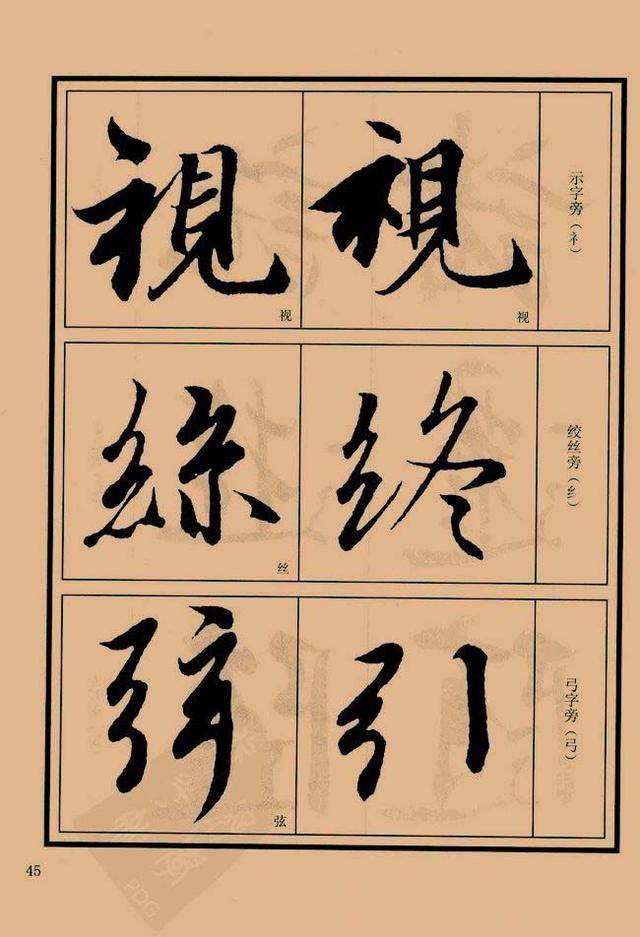 示字旁（礻）
視
视
視
视
绞丝旁（纟）
終
絲
丝
弓字旁（弓）
引
弦
弦
45
PDG